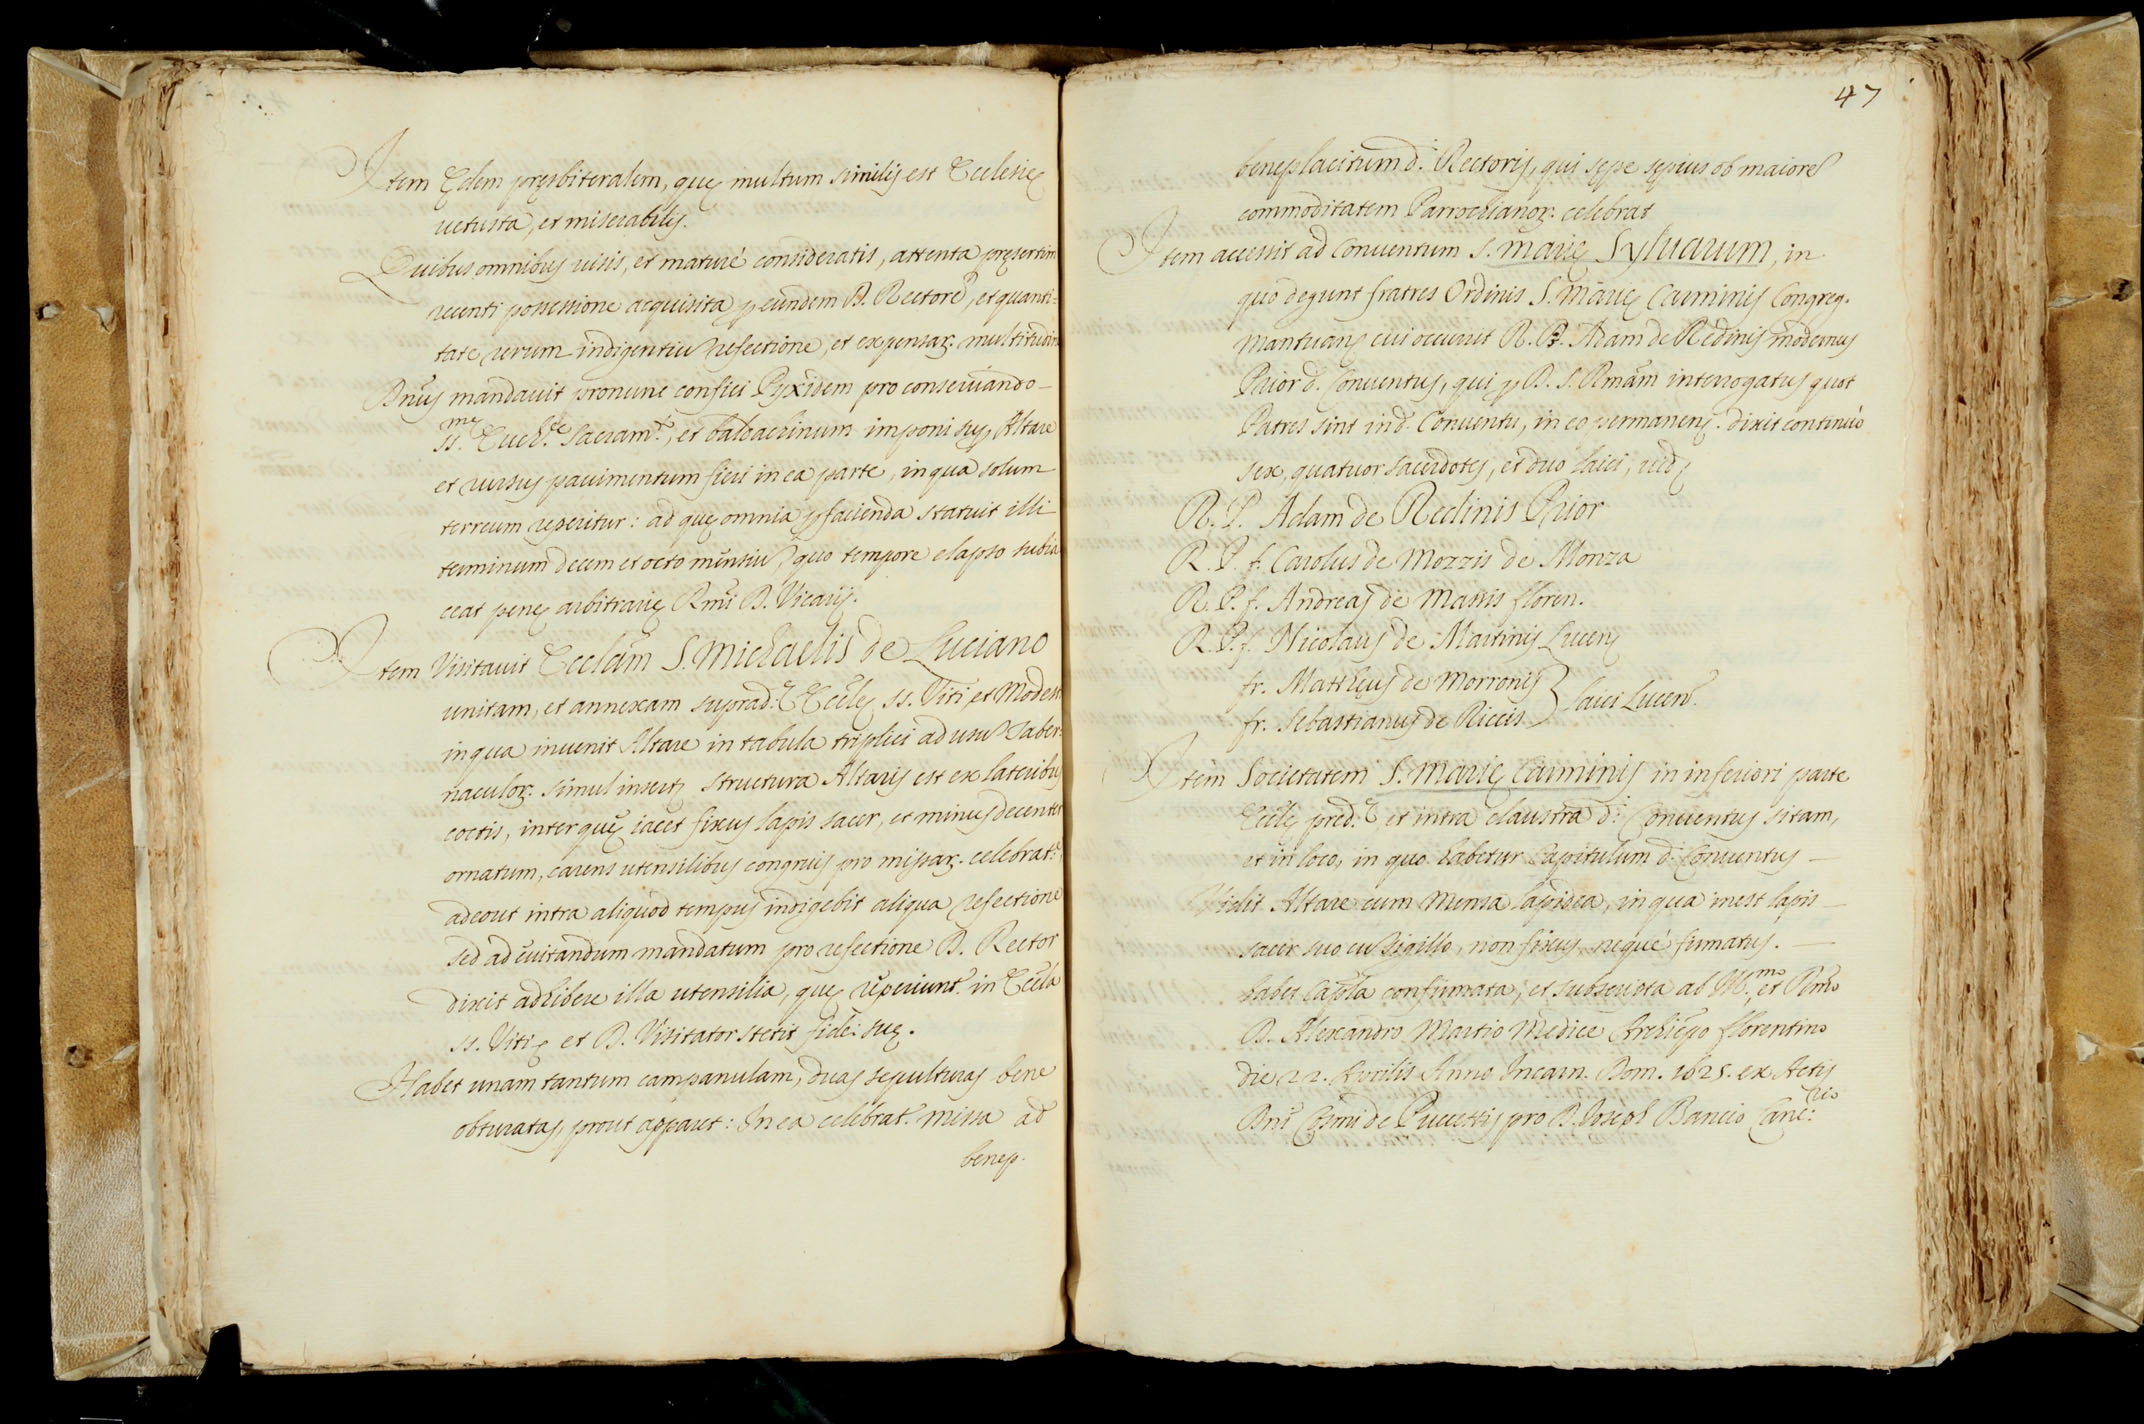 Item Ędem pręsbiteralem, quę multum similis est Ecclesię
uetusta, et miserabilis.
Quibus omnibus uisis, et maturè consideratis, attenta pręsertim
recenti possessione acquisita p eundem D. Rectorē, et quanti=
tate rerum indigentiū refectione, et expensar: multitudin
Dnūs mandauit pronunc confici Pyxidem pro conseruando
ss.me Euch.e Sacram.to, et baldachinum imponi sup Altare
et rursus pauimentum fieri in ea parte, in qua solum
terreum reperitur: ad quę omnia pfacienda statuit illi
terminum decem et octo mensiū, quo tempore elapso subia
ceat penę arbitrarię Rmi D. Vicarij.
Item Visitauit Ecclām S. Michaelis de Luciano
unitam, et annexam suprad.e Ecclę ss. Viti et Modesti
in qua inuenit Altare in tabula triplici ad usū Taber=
naculor: simul insert, structura Altaris est ex lateribus
coctis, inter quę iacet fixus lapis sacer, et minus decenter
ornatum, carens utensilibus congruis pro missar: celebrat.e
adeout intra aliquod tempus indigebit aliqua refectione
sed ad euitandum mandatum pro refectione D. Rector
dixit adhibere illa utensilia, quę reperiunt.r in Eccla
ss. Viti, et D. Visitator stetit fidei suę.
Habet unam tantum campanulam, duas sepulturas bene
obturatas, prout apparet: In ea celebrat.r missa ad
benep.
47
beneplacitum d.i Rectoris, qui sępe sępius ob maiorē
commoditatem Parrochianor: celebrat
Item accessit ad Conuentum S. Marię Syluarum, in
quo degunt fratres Ordinis S. Marię Carminis Congreg.
Mantuanę cui occurrit R. P. Adam de Redinis modernus
Prior d. Conuentus, qui p D. S. Rmām interrogatus quot
Patres sint in d. Conuentu, in eo permanenṣ. dixit continuò
sex, quatuor sacerdotes, et duo laici, uidz
R. P. Adam de Redinis Prior
R. P. f. Carolus de Mozzis de Monza
R. P. f. Andreas de Massis floren.
R. P. f. Nicolaus de Martinis Lucenṣ
fr. Matthęus de Morronis
fr. Sebastianus de Riccis } laici Lucenṣ.
Item Societatem S. Marię Carminis in inferiori parte
Ecclę pred.e, et intra claustra d.i Conuentus sitam,
et in loco, in quo habetur Capitulum d.i Conuentus
Vidit Altare cum Mensa lapidea, in qua inest lapis
sacer suo cū sigillo, non fixus, neque firmatus.
habet Capla confirmata, et subscripta ab Ill.mo et Rmo
D. Alexandro Martio Medice Archiepo florentino
die 22. Aprilis Anno Incarn. Dom. 1625. ex Actis
Dni Cosmi de Puccettis pro D. Joseph Bancio Canc:rio